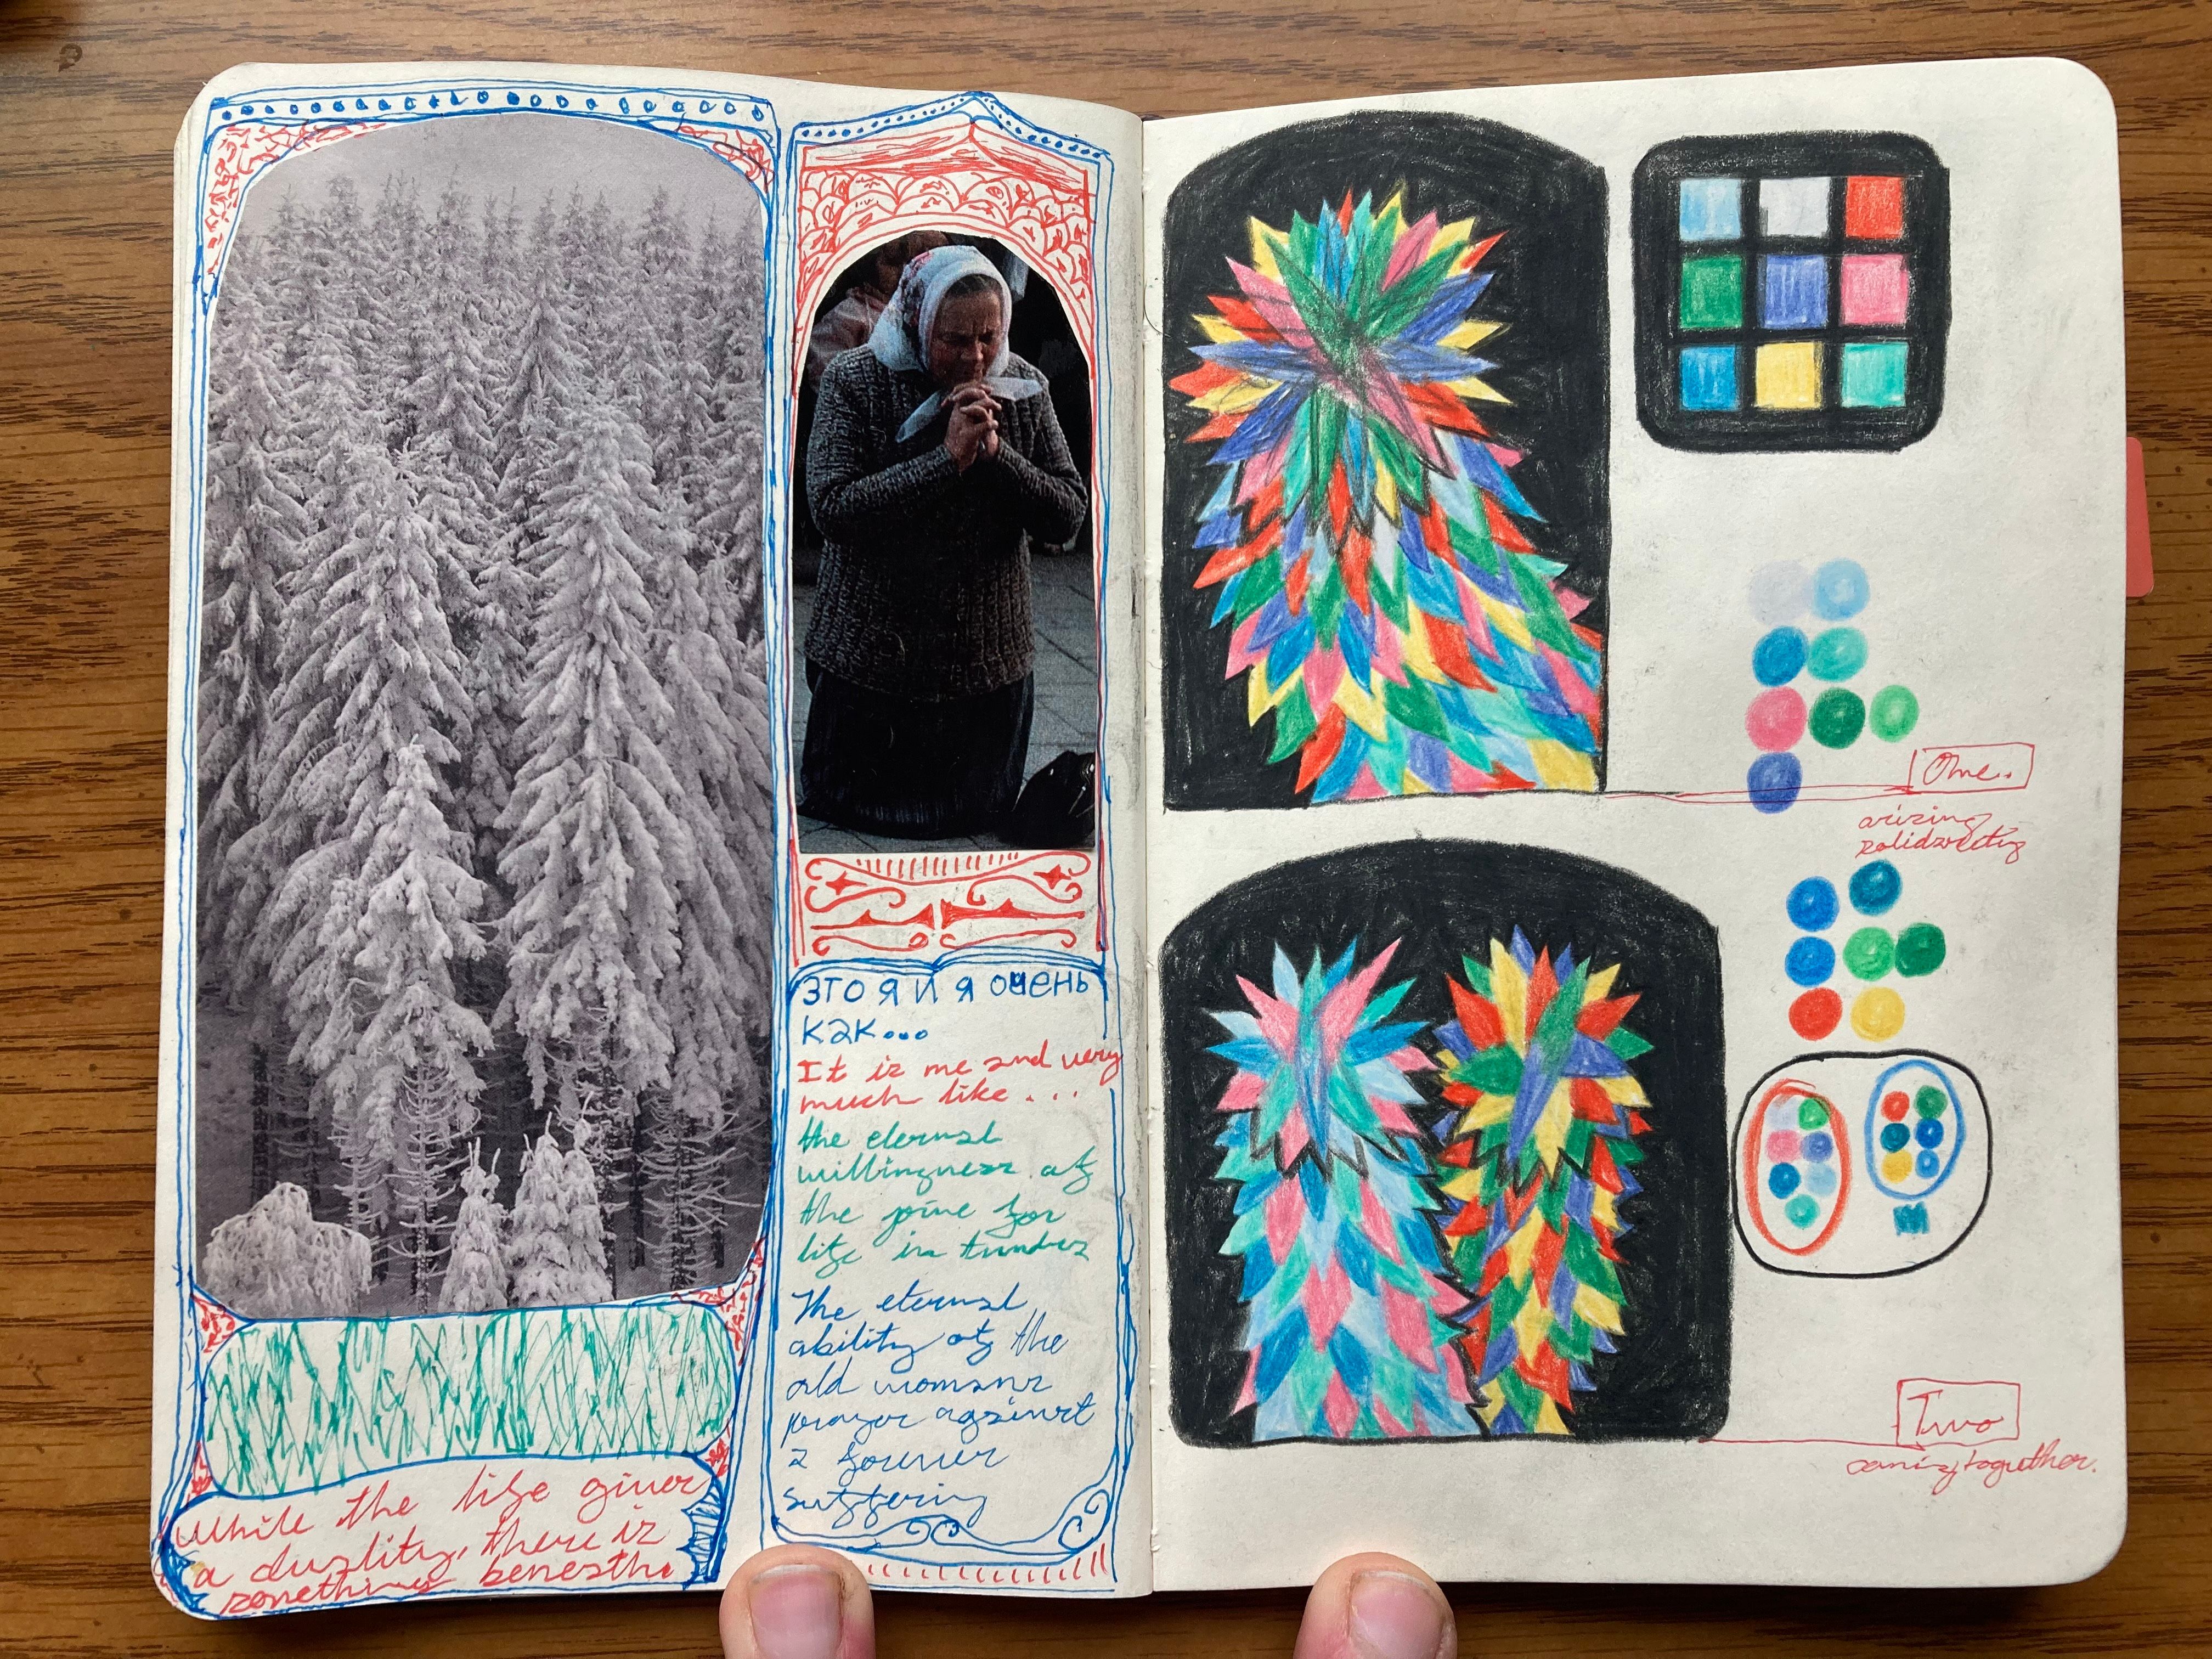 ЭТО Я И Я ОЧЕНЬ
как...
It is me and very
much like...
the eternal
willingness of
the pine for
life in tundra
The eternal
ability of the
old womans
prayer against
a forever
suffering
while the life gives
a duality, there is
something beneath.
One..
arising
solidarity
Two
together.